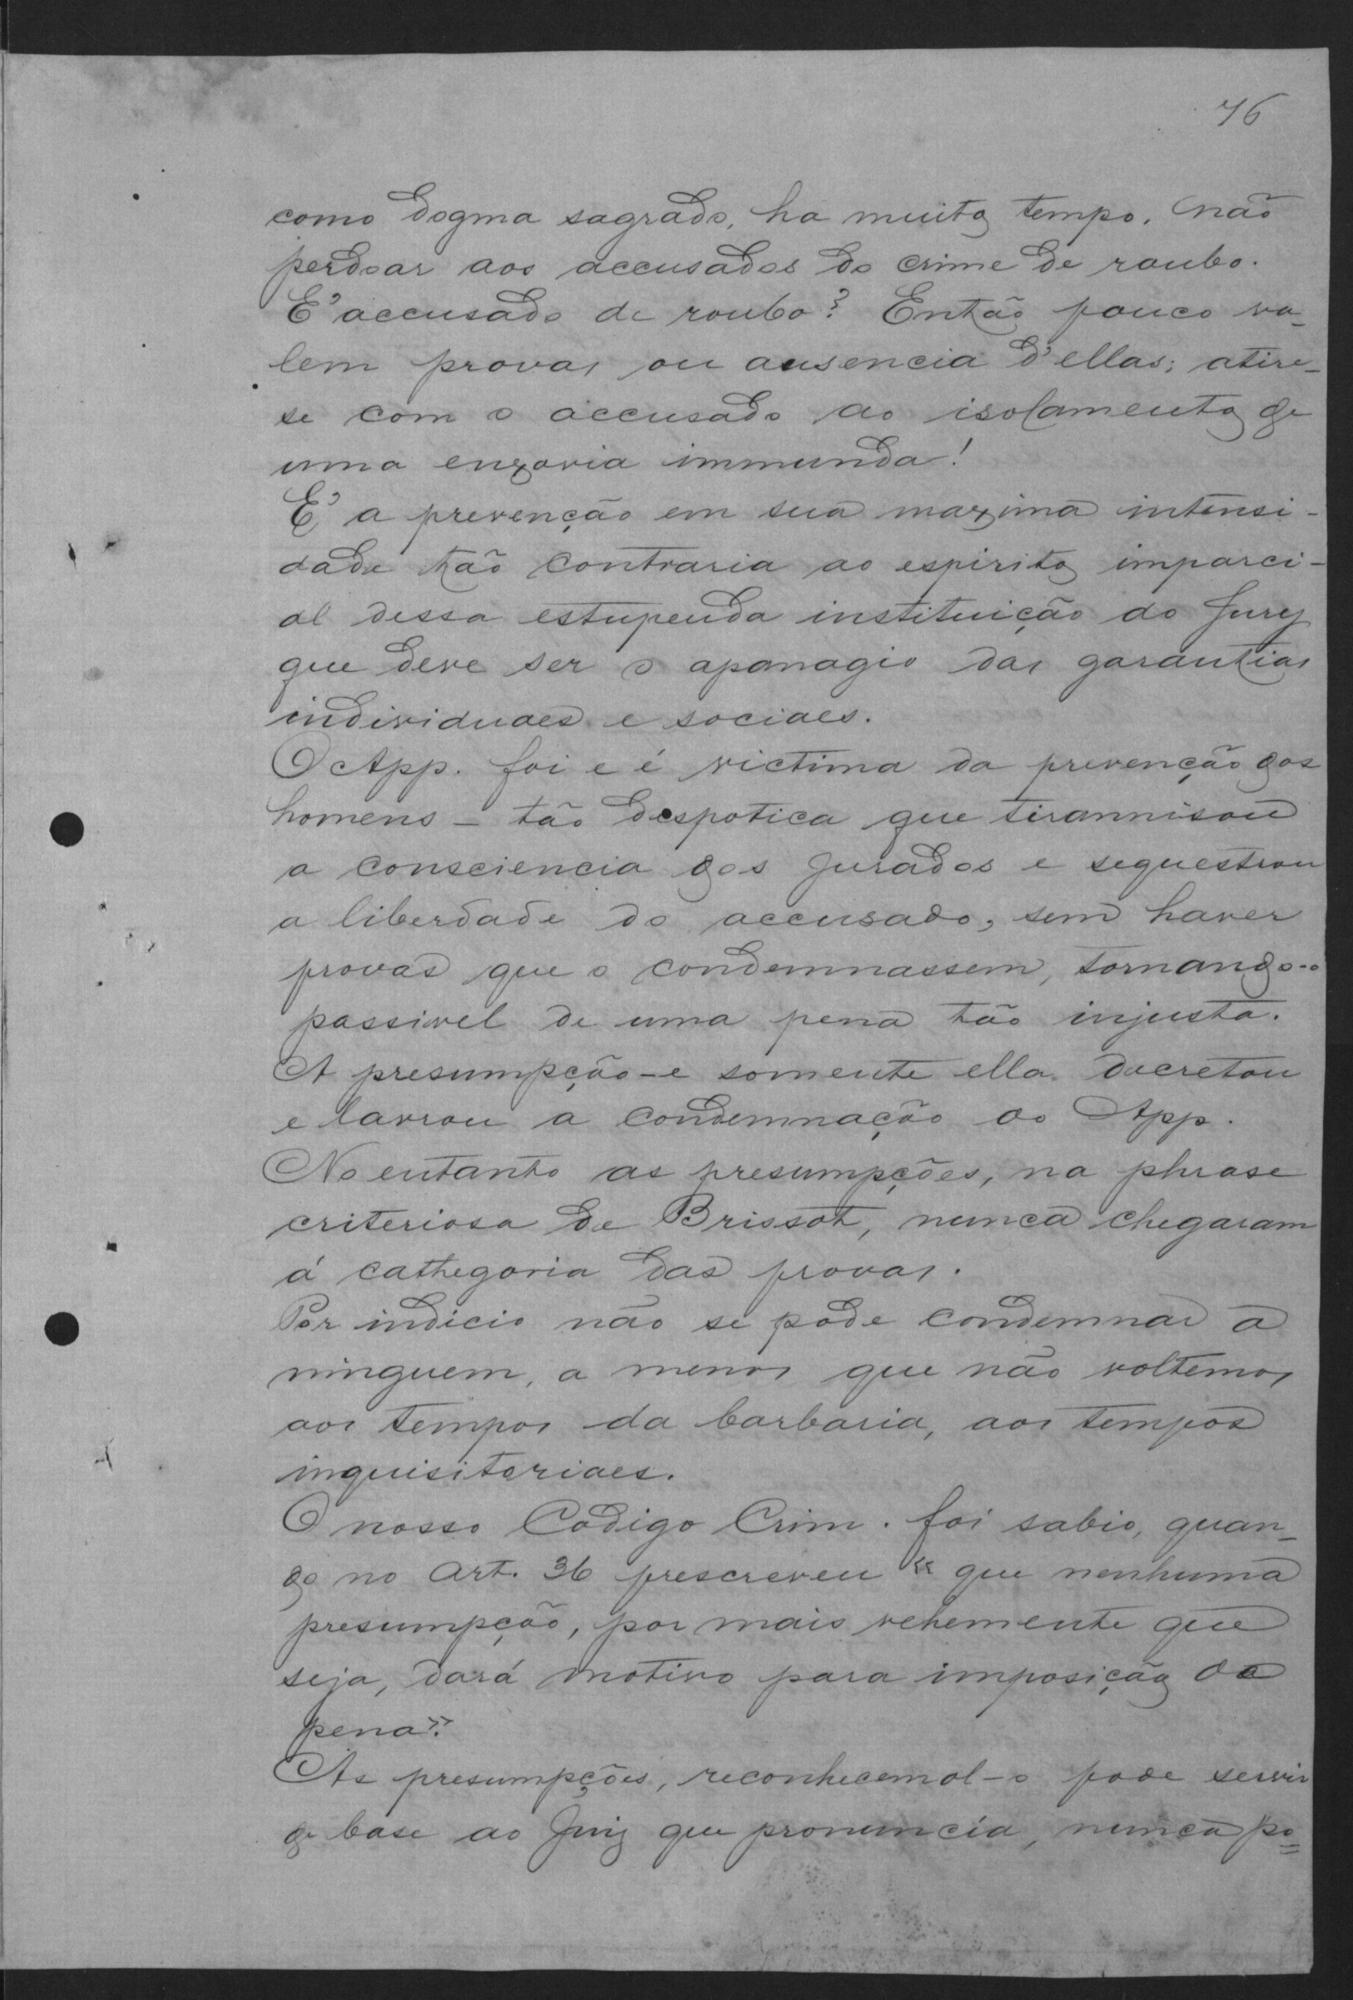 76
como dogma sagrado, ha muito tempo, não
perdoar aos accusados do crime de roubo.
E' accusado de roubo? Então pouco va-
lem provas ou ausencia d'ellas; atire-
se com o accusado ao isolamento de
uma enxovia immunda!
E' a prevenção em sua maxima intensi-
dade tão contraria ao espirito imparci-
al dessa estupenda instituição do Jury
que deve ser o apanagio das garantias
individuaes e sociaes.
O App. foi e é victima da prevenção dos
homens - tão despotica que tirannisou
a consciencia dos Jurados e sequestrou
a liberdade do accusado, sem haver
provas que o condemnassem, tornando-o
passivel de uma pena tão injusta.
A presumpção - e somente ella decretou
e lavrou a condemnação do App.
No entanto as presumpções, na phrase
criteriosa de Brissot, nunca chegaram
á cathegoria das provas.
Por indicio não se póde condemnar a
ninguem, a menos que não voltemos
aos tempos da barbaria, aos tempos
inquisitoriaes.
O nosso Codigo Crim. foi sabio, quan-
do no Art. 36 prescreveu « que nenhuma
presumpção, por mais vehemente que
seja, dará motivo para imposição da
pena».
As presumpções, reconhecemol-o póde servir
de base ao Juiz que pronuncía, nunca po=